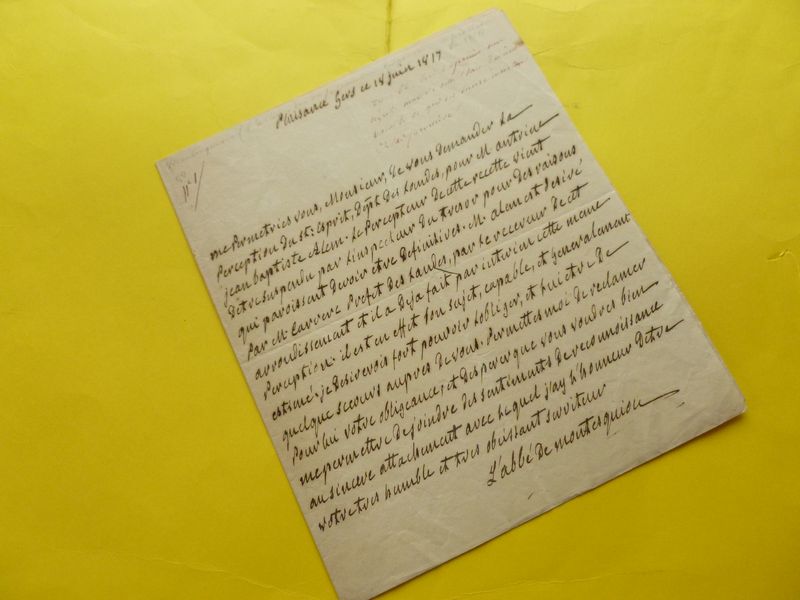 Plaisance Gers ce 18 juin 1817
me permettries vous, Monsieur, de vous demander la
perception du st: Esprit, Dept des Landes, pour M. antoine
jean baptiste Alem. le percepteur de cette recette vient
d'etre suspendu par l'inspecteur du tresor pour des raisons
qui paroissent devoir etre definitives. M. alem est desiré
par M. Carrere Prefet des Landes, par le receveur de cet
arrondissement et il a deja fait par interim cette meme
perception. il est en effet bon sujet, capable, et generalement
estimé. je desirerois fort pouvoir l'obliger, et lui etre de
quelque secours aupres de vous. permettes moi de reclamer
pour lui votre obligeance, et d'esperer que vous voudres bien
me permettre de joindre des sentiments de reconnoissance
au sincere attachement avec lequel j'ay l'honneur d'etre
votre tres humble et tres obeissant serviteur
L'abbé de montesquiou